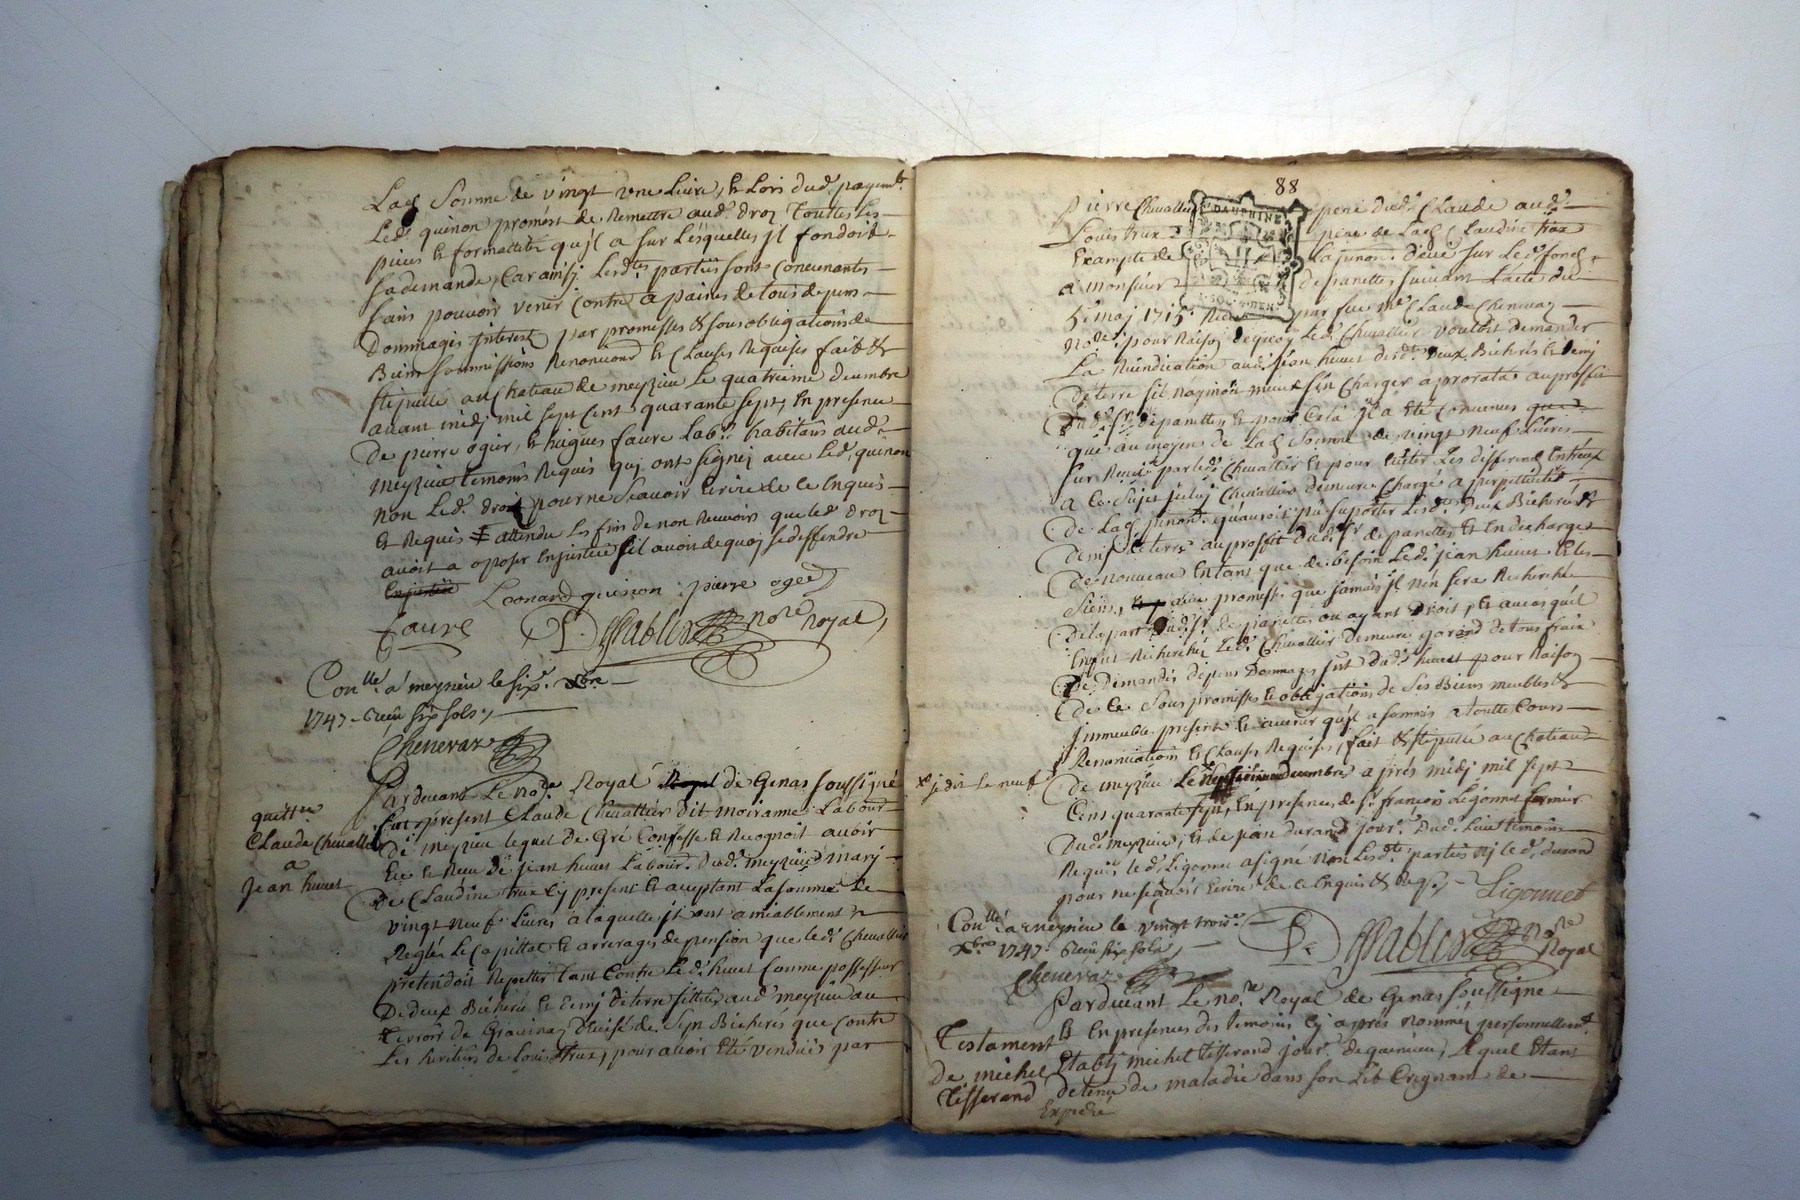 Lad. Somme de vingt une Livre, & Lors dud. payemt.
Led. quinon promest de Remettre aud. droz Touttes Les
pieces & formallites qu'jl a sur Lesquelles jl fondoit
sa demande, Car ainsj Lesdtes. parties sont Convenantes
sans pouvoir venir Contre a paines de tous depens
Dommages Interest par promesses & sous obligations de
Biens soumissions Renonciaons & Clauses Requises fait &
stipullé au Chateau de meyzieu Le quatrieme decembre
avant midj mil sept Cent quarante sept, En presence
De pierre ogier, & hugues faure Labrs. habitans aud.
meyzieu temoins Requis quj ont signéz avec Led. quinon
non Led. droz pour ne scavoir Ecrire de ce Enquis
& Requis attendu Les fins de non Recevoir que led. droz
avoit a oposer En justice s'il avoit de quoj se deffendre
Leonard quinon pierre ogee
faure nore. Royal
Conlle. a meyzieu le six. xbre.
1747 - Receu six sols,
Chenevaz
Pardevant Le nore. Royal de Genas soussigné
quittce
Claude Chevallier
a
jean huvet
fut present Claude Chevallier dit moiranne Labour.
De meyzieu lequel de Gré Confesse & Recognoit avoir
Eu & Receu de jean huvet Labour. dud. meyzieu marj
De Claudine trux Cy present & aceptant La somme de
vingt neuf Livres a laquelle jls ont amiablement
Reglés Le Capittal & arrerages de pension que led. Chevallier
pretendoit Repetter tant Contre Led. huvet Comme possesseur
De deux Bicherées & demj de terre scittués aud. meyzieu au
terroir de Gravinaz que Contre
Les heritiers de Louis trux, pour avoir Eté venduës par
88
DAUPHINE
Pierre Chevallier pere dud. Claude aud.
Louis trux pere de Lad. Claudine trux
Exempte de La pension deue sur Led. fond
a monsieur de panettes suivant L'acte du
5e. maj 1715 par feu Me. Claude Chenevaz
nore. pour Raison dequoy Led. Chevallier vouloit demander
La aud. jean huvet desdt. deux Bicherés & demj
De terre sil n'aymoit mieux s'en Charger a prorata au proffit
Dud. sr. de panettes, & pour Cela jl a Eté Convenus
que au moyen de Lad. Somme de vingt neuf Livres
par led. Chevallier & pour Eviter Les differend Entr'eux
a Ce sujet jceluj Chevallier demeure Chargé a perpettuité
De Lad. pension qu'auroit pu suporter Lesd. deux Bicherés &
demj de terre au proffit dud. sr. de panettes & En decharge
De nouveau En tant que de besoin Led. jean huvet & les
siens, avec promesse que jamais jl n'en sera Recherché
De la part dud. sr. de panettes ou ayant droit, & au cas qu'il
En fut Recherché Led. Chevallier demeure garand de tous frais
De demandes depens Dommages jnt. dud. huvet pour Raison
de Ce Sous promesses & obligations de Ses Biens meubles &
jmmeubles presents & avenir qu'jl a soumis a toutte Cours
Renonciations & Clauses Requises, fait & stipullé au Chateau
x je dis le neuf
De meyzieu Le decembre apres midj mil sept
Cens quarante sept, En presences de sr. francois Ligonnet fermier
Dud. meyzieu, & de jean durand jour. Dud. Lieu temoins
Requis, led. Ligonnet a signé non Lesdtes. parties nj led. durand
pour ne scavoir Ecrire de ce Enquis & Req.
Ligonnet
Conlle. a meyzieu le vingt trois.
xbre. 1747. Receu six sols,
nore.
Royal
Chenevaz
Pardevant Le nore. Royal de Genas soussigné
Testament
de michel
Tisserand
& En presences des temoins cy apres nommez personnellemt.
Etablj michel tisserand jour. Lequel Etant
detenu de maladie dans son Lit Craignant de
Expedié